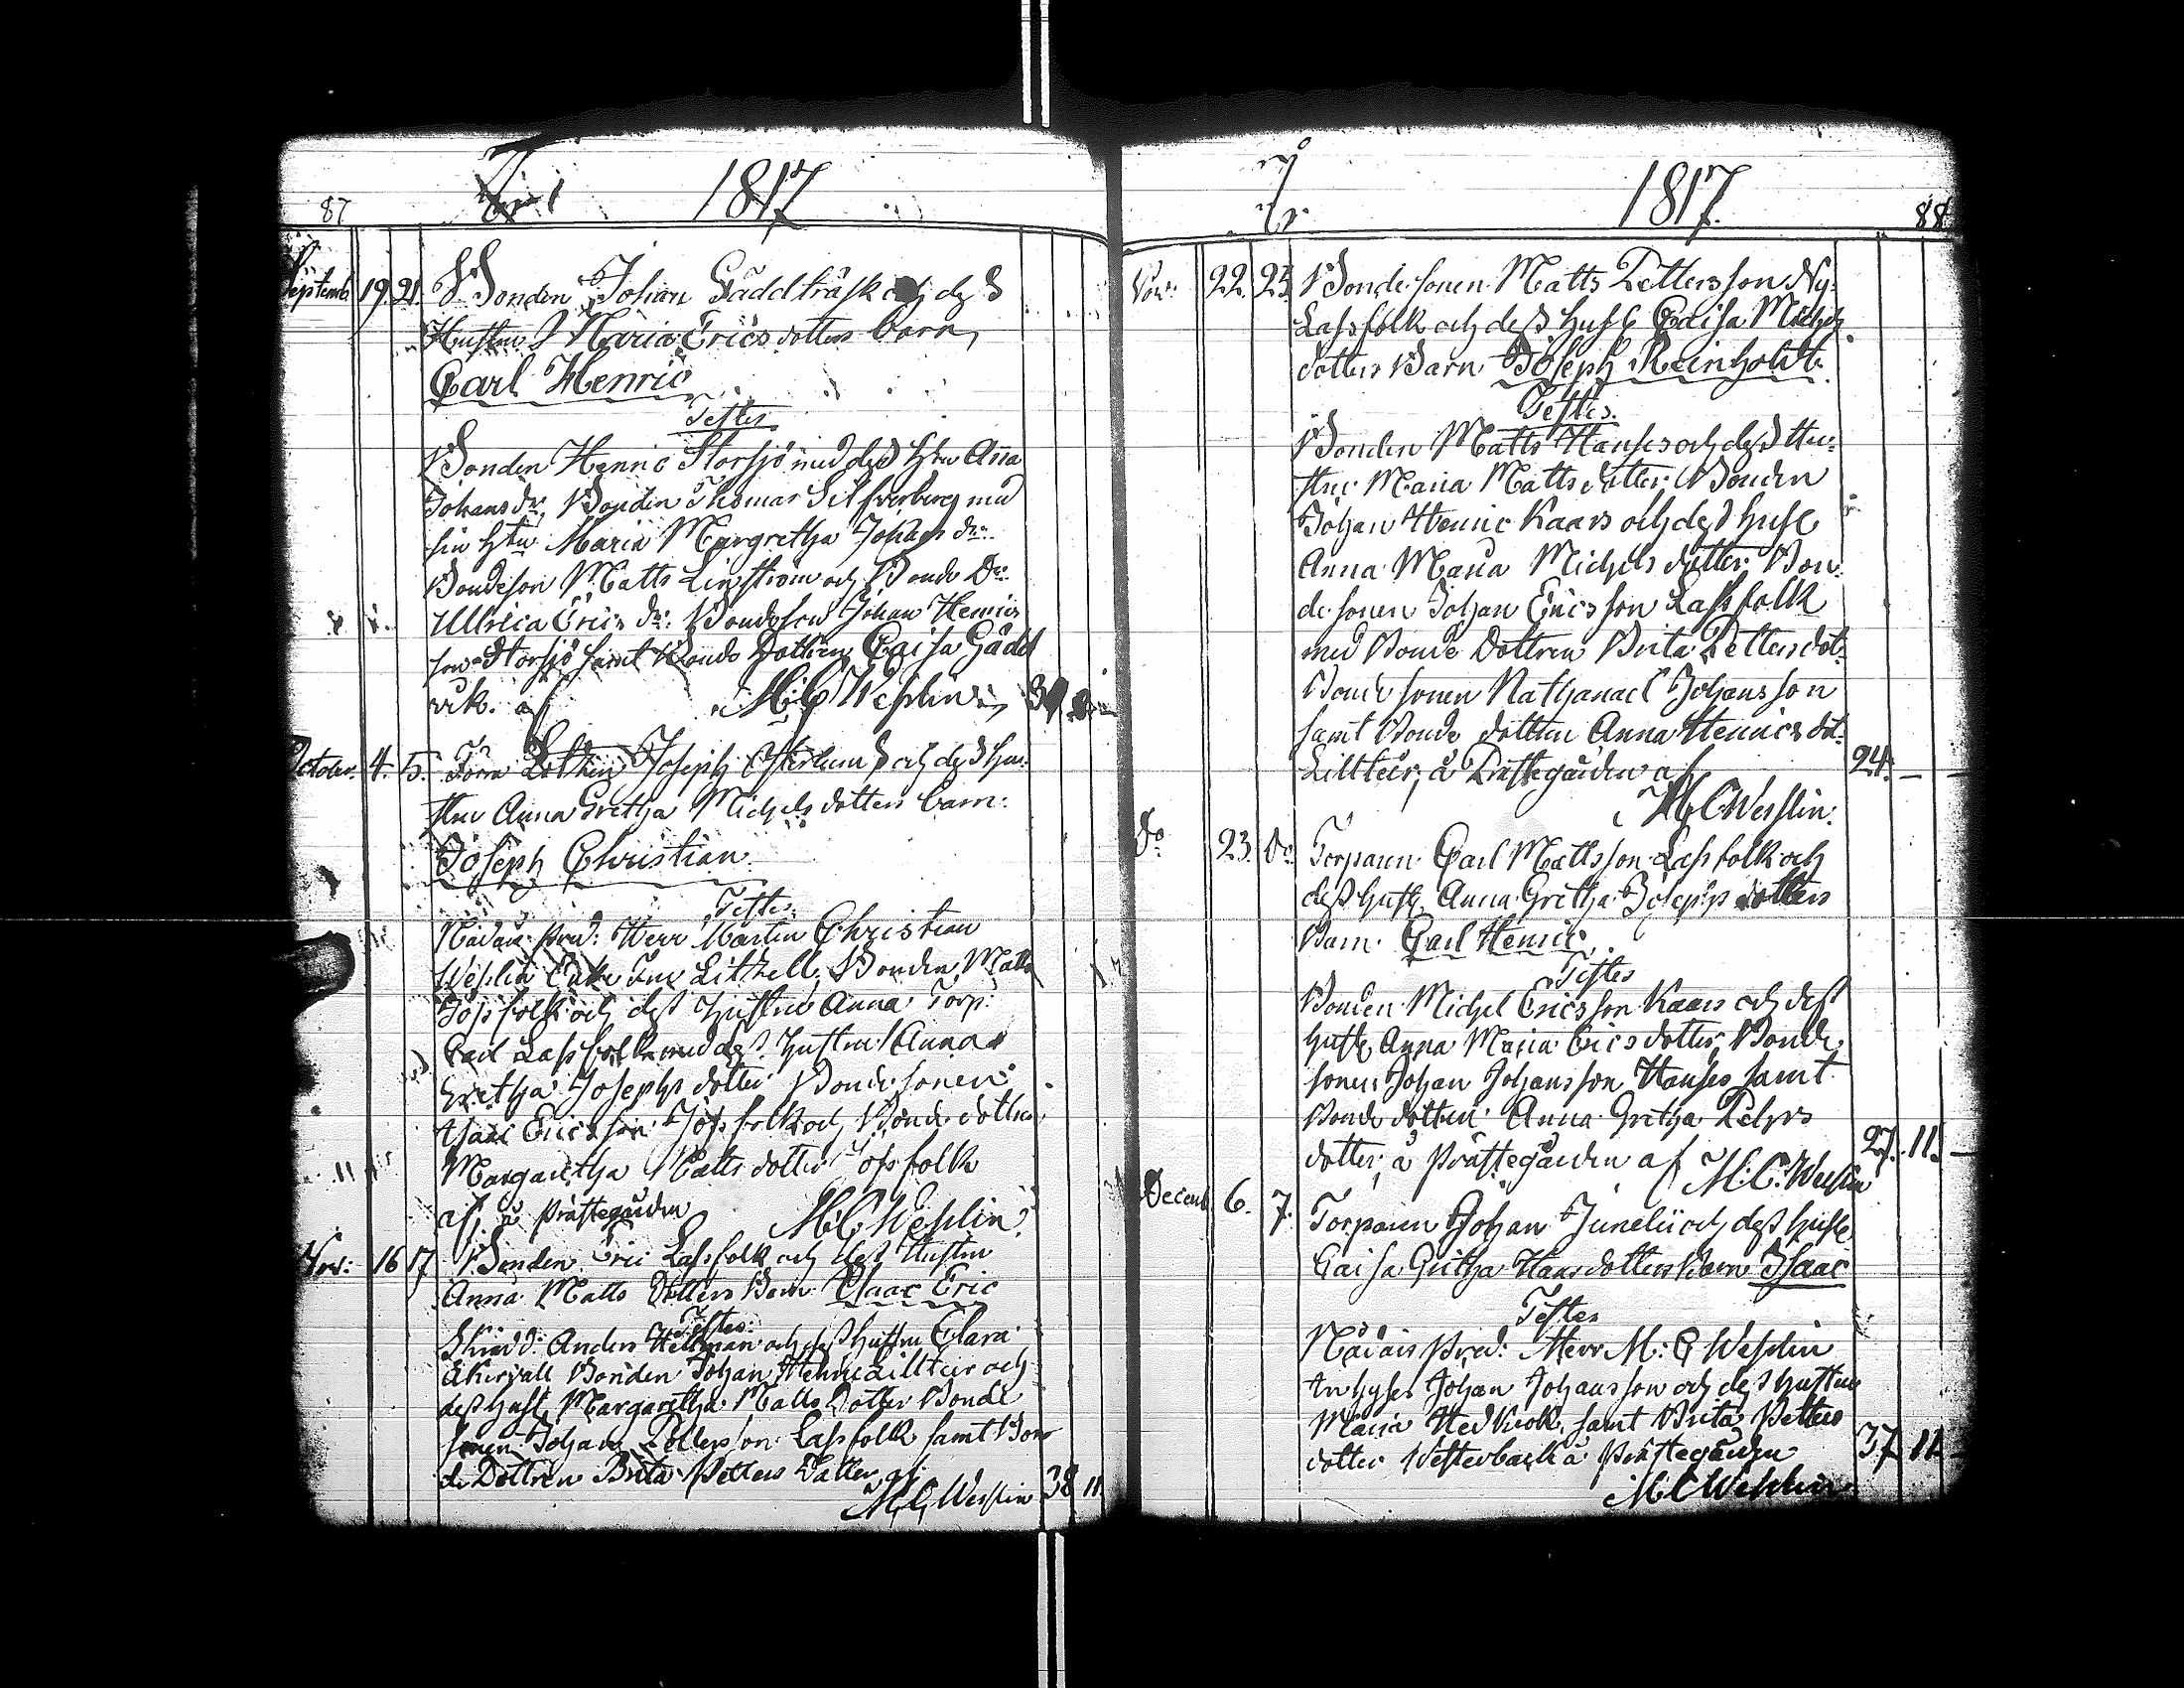 87
1817
Septemb. 19. 21. Bonden Johan Gäddträsk och dess
Hustru Maria Ericsdotters barn,
Carl Henric
Testes
Bonden Henric Storsjö med dess hstu Anna
Johansdr. Bonden Thomas Silfverberg med
sin hstu Maria Margretha Johans dr.
Bondeson Matts Linström och Bonde Dr.
Ullrica Erics dr. Bondeson Johan Henrics
son Storsjö samt Bonde Dottren Caisa Gädd
vik. af M:C Wesslin
October. 4. 5. Joseph Österlund och dess Hu-
stru Anna Gretha Michelsdotters barn:
Joseph Christian
Testes
Nådårs Pred: Herr Martin Christian
Wesslin Enke Fru Lithell, Bonden Matts
Jössfolk och dess Hustru Anna Torp:
Carl Lassfolk med dess hustru Anna
Gretha Josephs dotter Bonde sonen
Ericsson Jössfolk och Bonde dottren
Margaretha Mattsdotter Jössfolk
af, å Prästegården M:C Wesslin.
Nov: 16 17 Bonden Eric Lassfolk och dess Hustru
Anna Matts Dotters Barn Isaac Eric
Testes.
Anders Hellman och dess Hustru Clara
Åkervall Bonden Johan Henric Lillteir och
dess Hust. Margaretha Matts Dotter Bonde
sonen Johan Pettersson Lassfolk samt Bon
de Dottren Brita Petters Dotter af
M,C, Wesslin 38 11.
1817.
88
Nov: 22. 23. Bonde sonen Matts Pettersson Ny-
Lassfolk och dess hust. Caisa Michels
dotters Barn Joseph Reinholdt.
Testes.
Bonden Matts Hansson och dess Hu-
stru Maria Mattsdotter. Bonden
Johan Henric Kaars och dess hust.
Anna Maria Michels dotter. Bon-
de sonen Johan Ericsson Lassfolk
med Bonde Dottren Brita Pettersdot-
Bonde sonen Nathanael Johansson
samt Bonde dottren Anna Henricsdot.
Lillteir, å Prästegården af 24. —
M,C Wesslin.
Do 23. Do Torparen Carl Mattsson Lassfolk och
dess hust. Anna Gretha Josephs dotters
Barn Carl Henric.
Testes
Bonden Michel Ericsson Kaars och dess
hust. Anna Maria Ericsdotter, Bonde
sonen Johan Johansson Hansos samt
Bonde dottren Anna Gretha Pehrs
dotter, å Prästegården af M:C: Wesslin 27. 11. —
Decemb 6. 7. Torparen Johan Juneli och dess hust.
Caisa Gretha Hansdotters Barn Isaac
Testes
Nådårs Pred: Herr M: C Wesslin
Inhyses Johan Johansson och dess hustru
Maria Hedkrok, samt Brita Petters
dotter Westerback å Prästegården 37 11 —
M C Wesslin